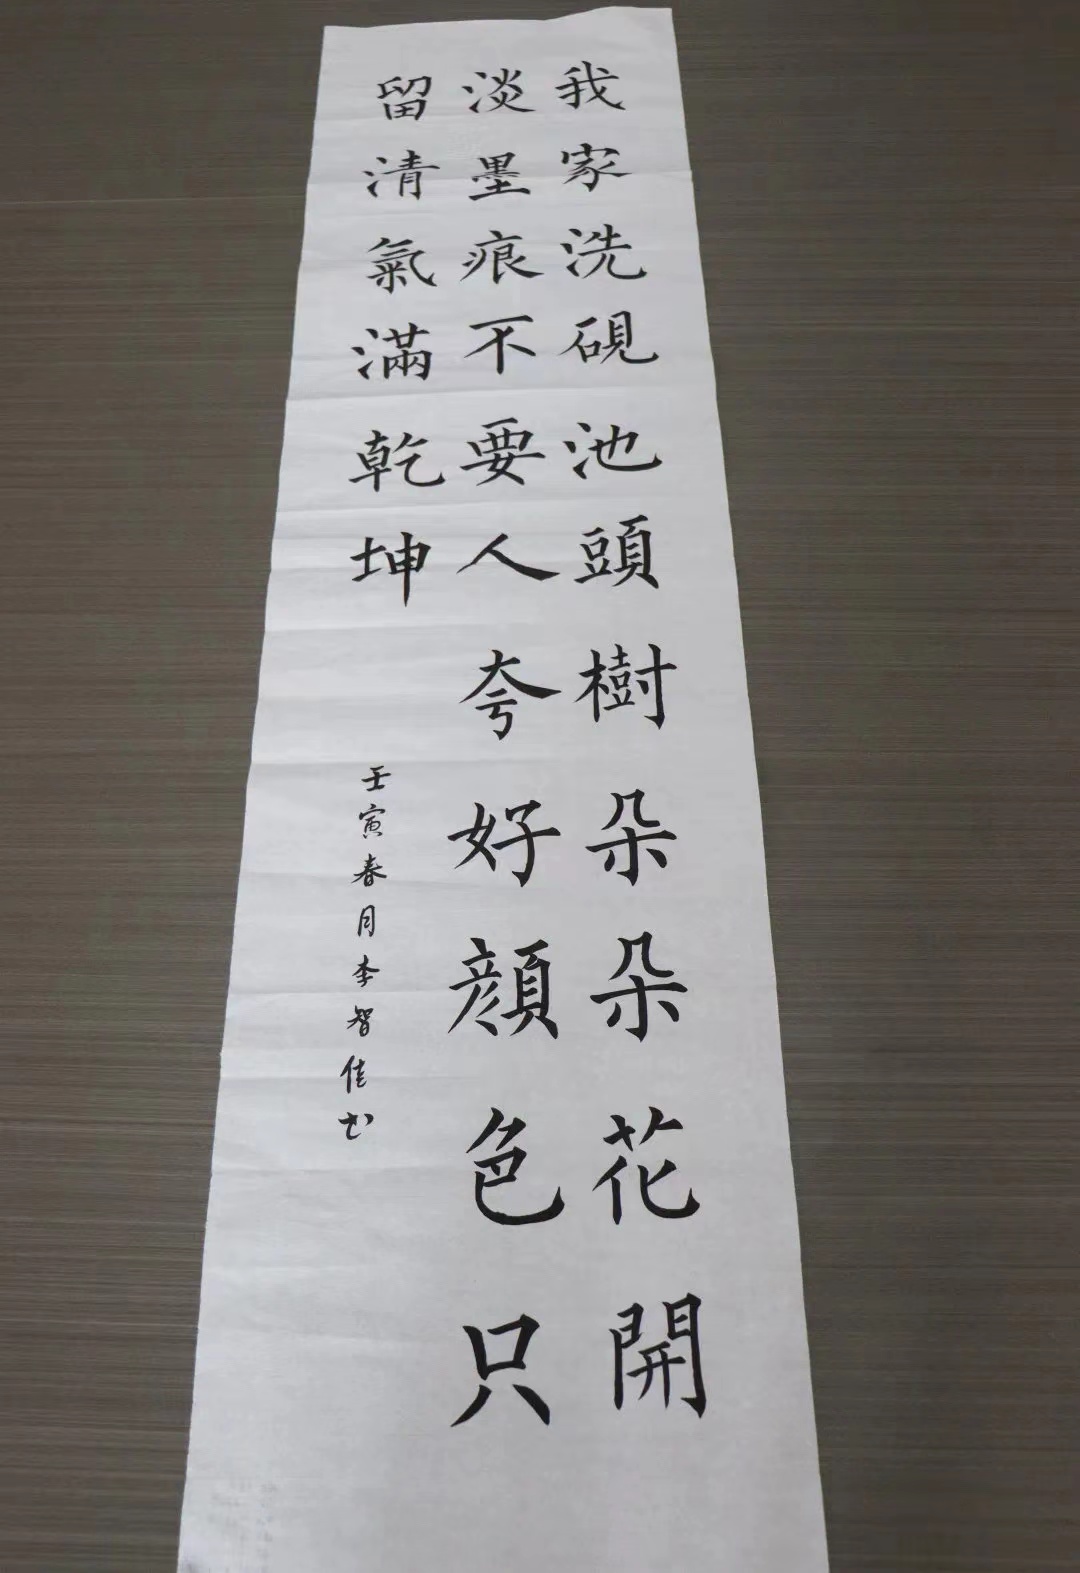 我家洗硯池頭樹朵朵花開
淡墨痕不要人夸好顔色只
留清氣滿乾坤
壬寅春月李智佳书